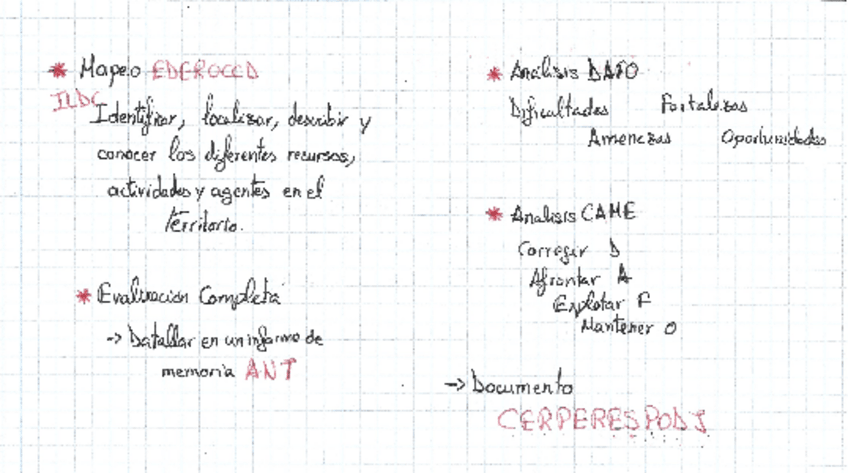 * Mapeo EDEROCCD
ILDC
Identificar, localizar, describir y
conocer los diferentes recursos,
actividades y agentes en el
Territorio.
* Evaluación Completa
-> Datallar en un informe de
memoria ANT
* Análisis DAFO
Dificultades Fortalezas
Amenazas Oportunidades
* Analisis CAME
Corregir D
Afrontar A
Explotar F
Mantener O
-> Documento
CERPERESPODJ